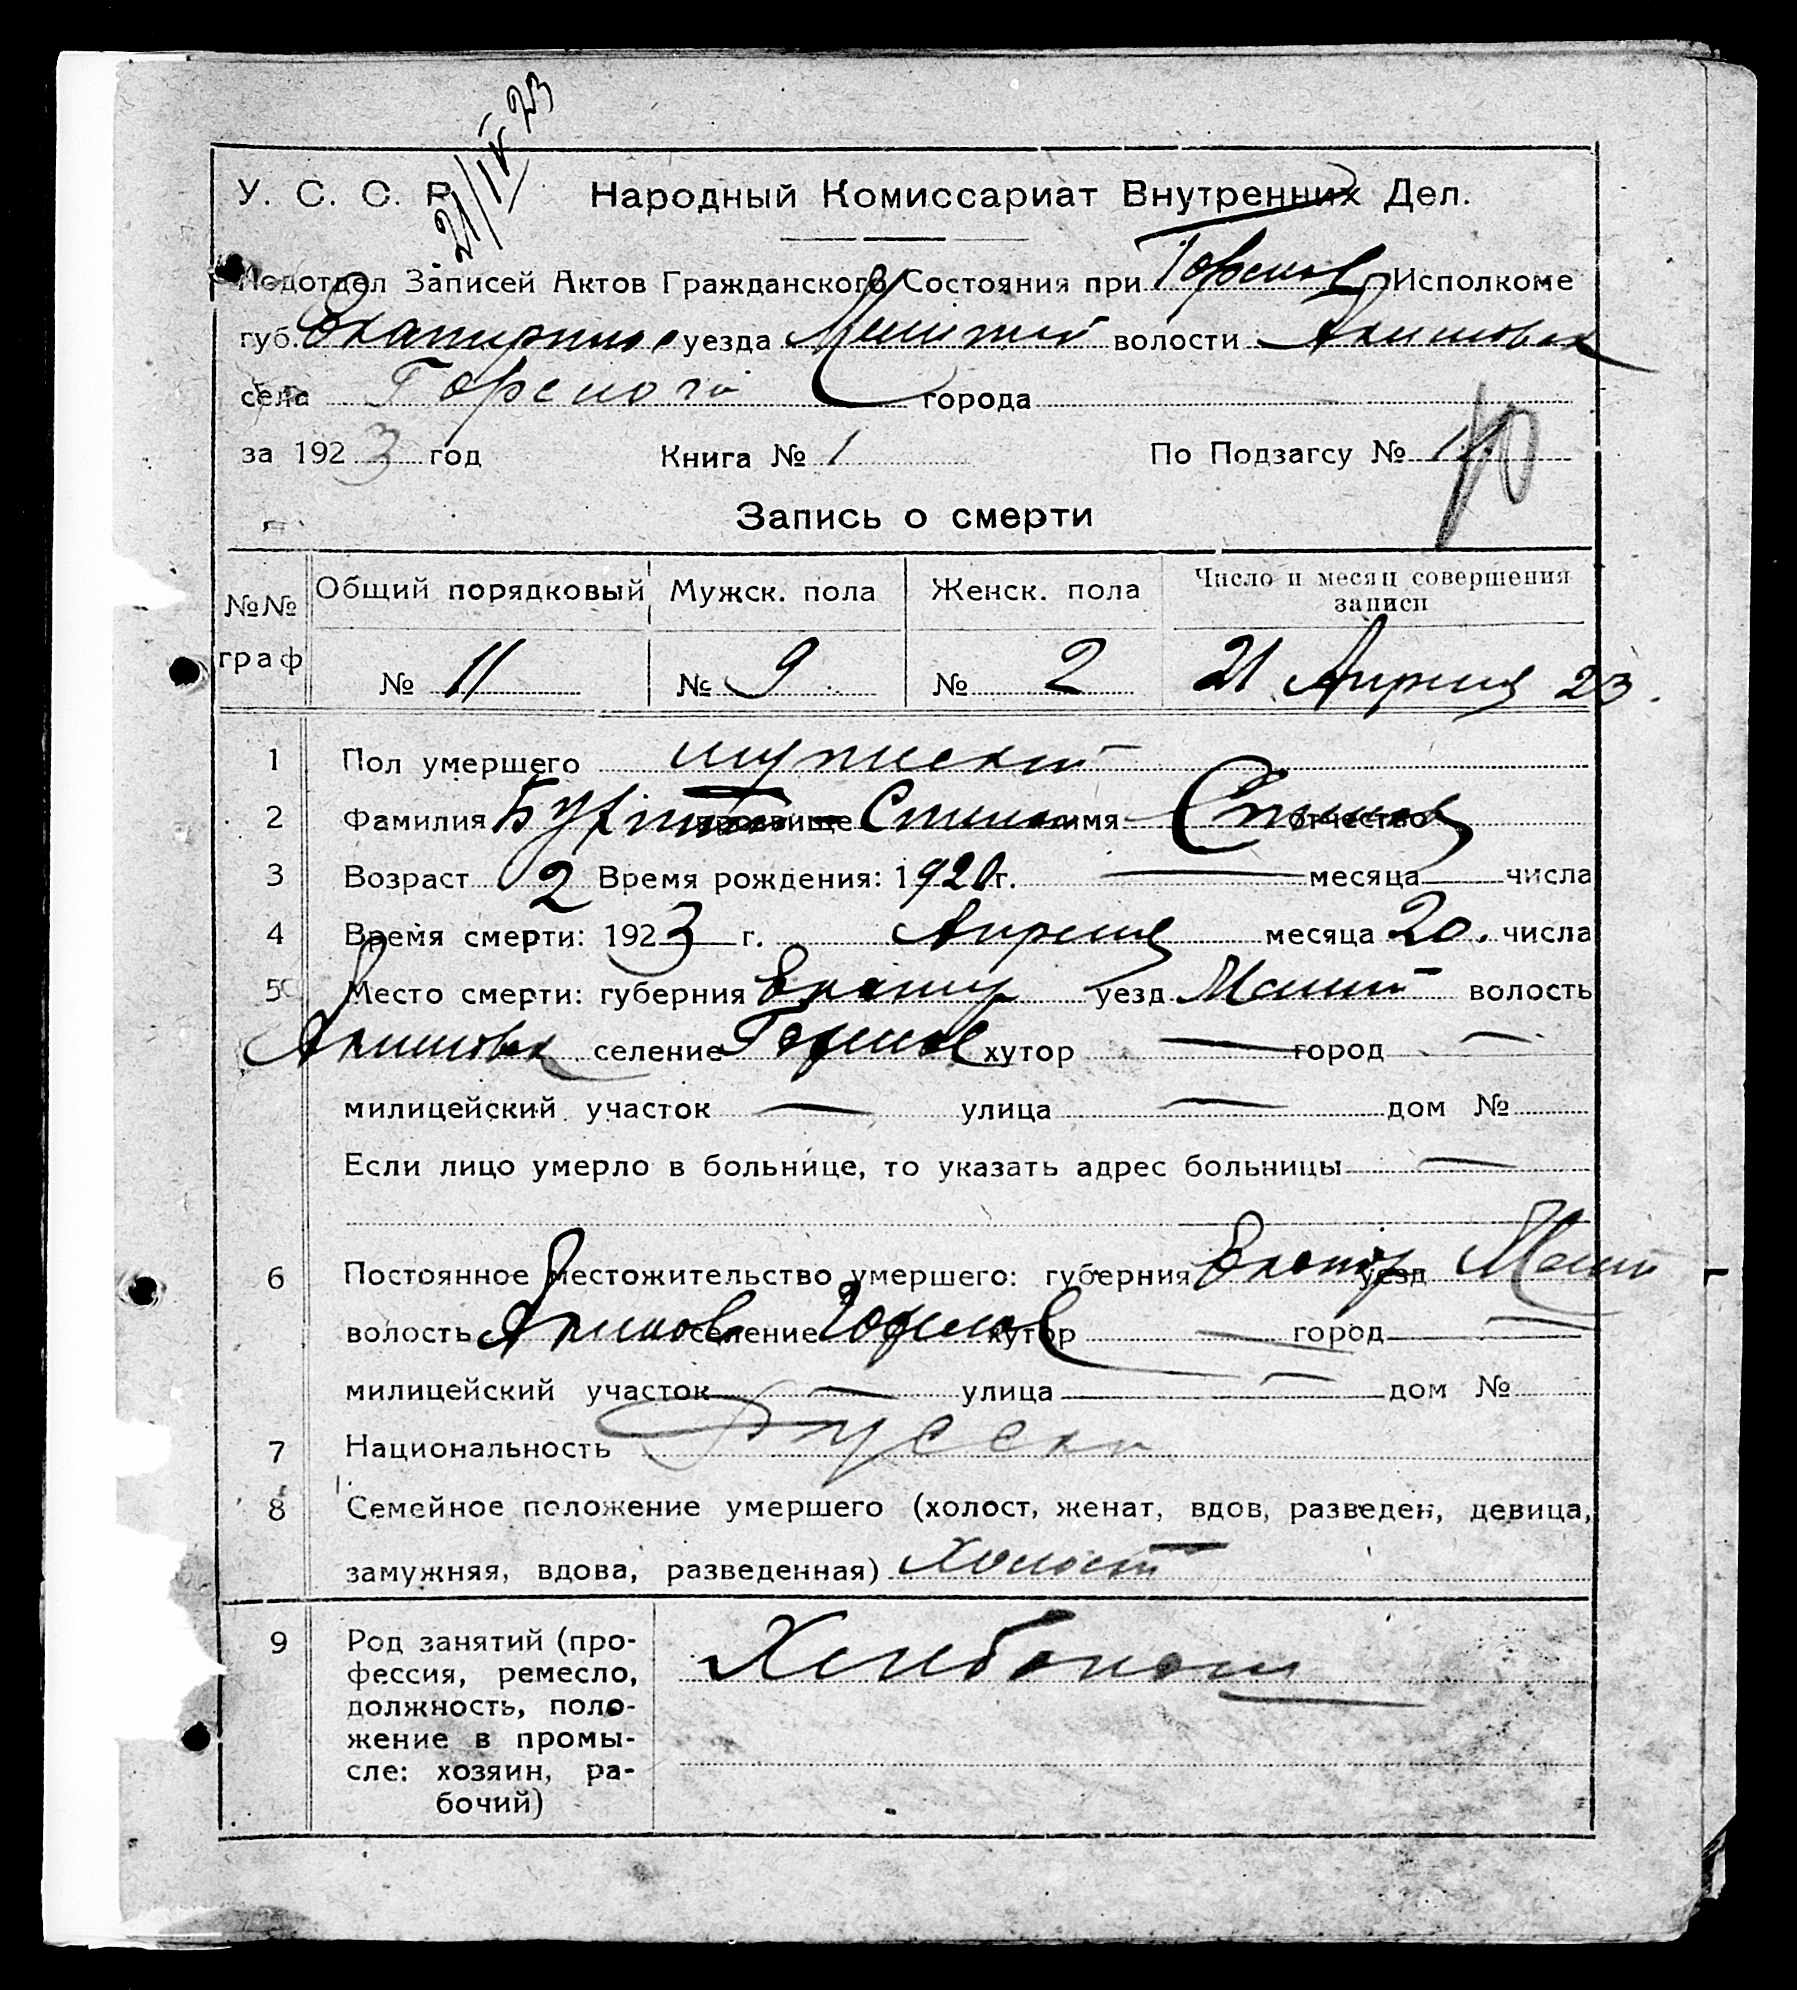 21/IV 23
У. С. С. Р. Народный Комиссариат Внутренних Дел.
Подотдел Записей Актов Гражданского Состояния при Горсков Исполкоме
губ. Екатеринос уезда Мелитоп волости Акимовск
села Горского города —
за 1923 год Книга № 1 По Подзагсу № 11
10
Запись о смерти
№№ граф Общий порядковый Мужск. пола Женск. пола Число и месяц совершения записи
№ 11 № 9 № 2 21 Апреля 23.
1 Пол умершего мужской
2 Фамилия прозвище имя отчество
3 Возраст 2 Время рождения: 1920 г. — месяца числа
4 Время смерти: 1923 г. Апреля месяца 20. числа
5 Место смерти: губерния Екатер уезд Мелит волость
Акимовск селение Горсков хутор — город —
милицейский участок — улица — дом №
Если лицо умерло в больнице, то указать адрес больницы —
6 Постоянное местожительство умершего: губерния Екатер уезд Мелит
волость Акимов селение Горсков хутор — город —
милицейский участок — улица — дом №
7 Национальность Русски
8 Семейное положение умершего (холост, женат, вдов, разведен, девица,
замужняя, вдова, разведенная) Холост
9 Род занятий (про-
фессия, ремесло,
должность, поло-
жение в промы-
сле: хозяин, ра-
бочий)
Хлебопаш